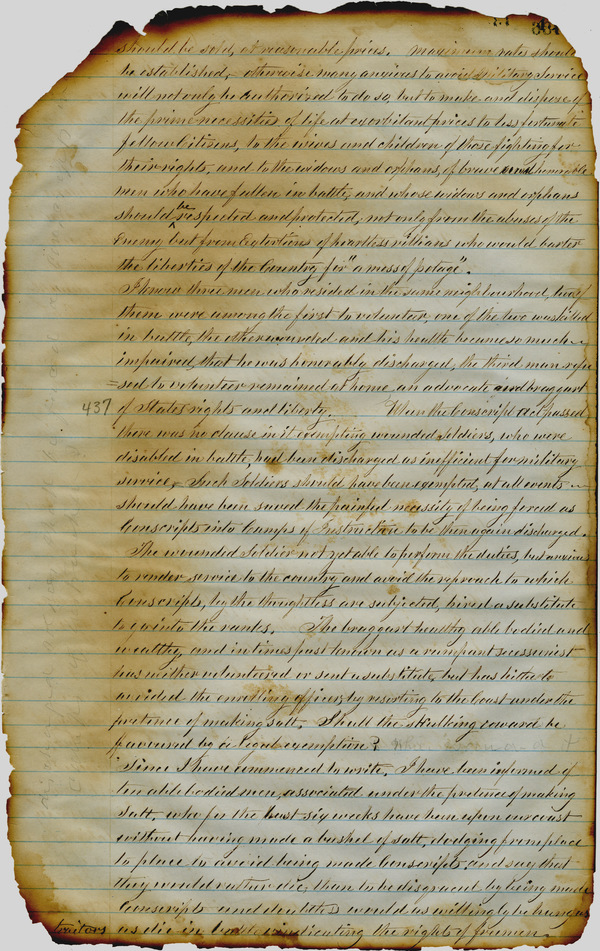 should be sold, at reasonable prices. maximum rates should
be established, otherwise many anxious to avoid military service
will not only be authorized to do so, but to make and dispose of
the prime necessities of life at exorbitant prices to less fortunate
fellow citizens, to the wives and children of those fighting for
their rights, and to the widows and orphans, of brave and honorable
men who have fallen in battle, and whose widows and orphans
should be respected and protected, not only from the abuses of the
Enemy but from Extortions of heartless villians who would barter
the liberties of the Country for "a mess of potage".
I know three men who resided in the same neighbourhood, two of
them were among the first to volunteer, one of the two was killed
in battle, the other wounded and his health became so much
impaired, that he was honorably discharged, the third man refu
=sed to volunteer remained at home an advocate and braggart
437 of States rights and liberty. When the Conscript Act passed
there was no clause in it exempting wounded Soldiers, who were
disabled in battle, had been discharged as inefficient for military
service, Such Soldiers should have been exempted, at all events
should have been saved the painful necessity of being forced as
Conscripts into Camps of Instruction to be then again discharged.
The wounded Soldier not yet able to perform the duties, but anxious
to render service to the country and avoid the reproach to which
Conscripts, by the thoughtless are subjected, hired a substitute
to go into the ranks. The braggart healthy able bodied and
wealthy, and in times past known as a rampant secessionist
has neither volunteered or sent a substitute, but has hitherto
avoided the enrolling officer, by resorting to the Coast under the
pretence of making salt. Shall the skulking coward be
favoured by a legal exemption?
Since I have commenced to write, I have been informed of
ten able bodied men, associated under the pretence of making
Salt, who for the last six weeks have been upon our coast
without having made a bushel of salt, dodging from place
to place to avoid being made Conscripts and say that
they would rather die, than to be disgraced by being made
Conscripts and would as willingly be hung as
traitors as die in battle vindicating the rights of freemen.